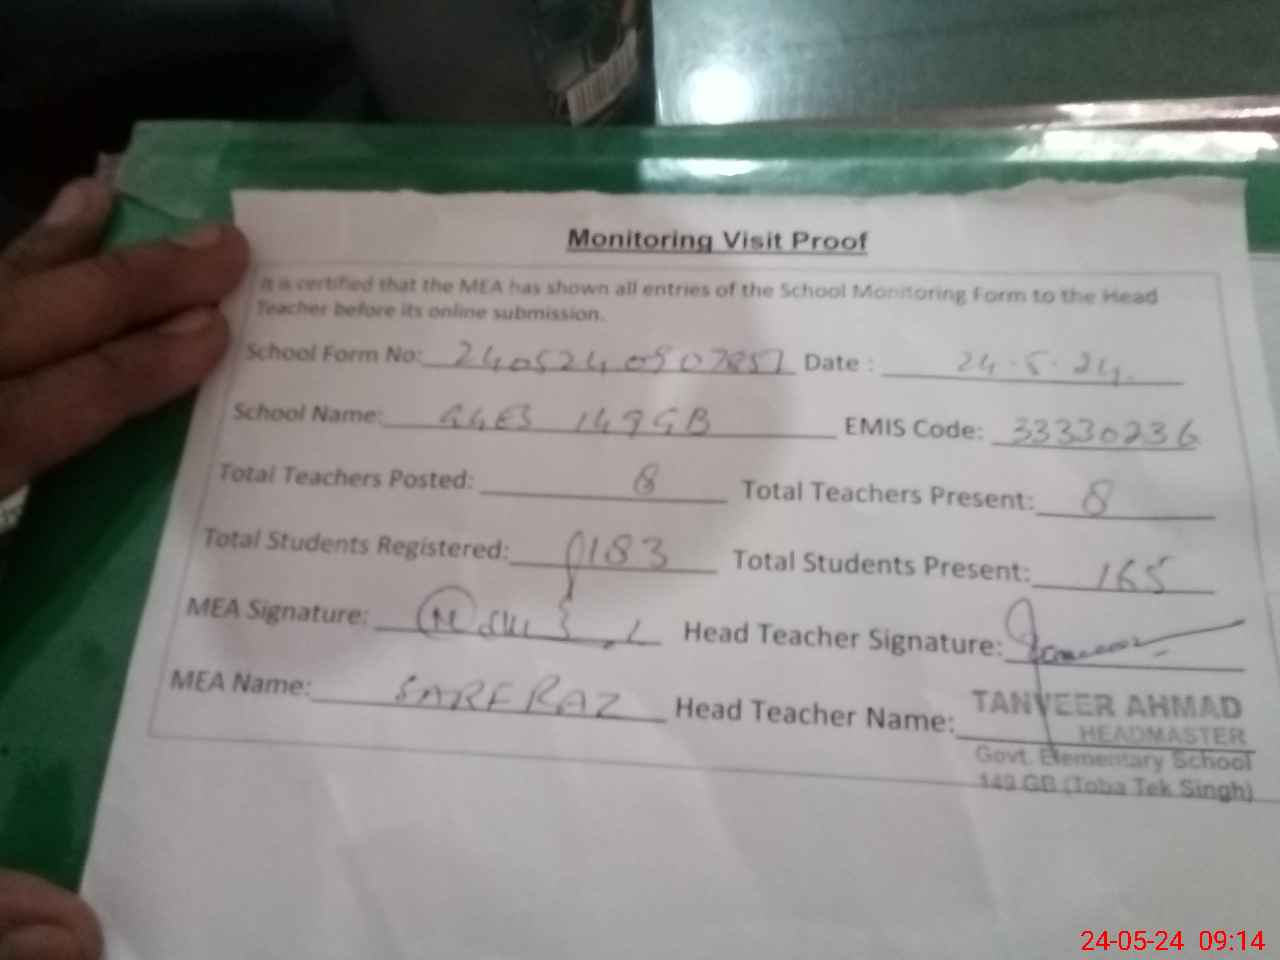 Monitoring Visit Proof
It is certified that the MEA has shown all entries of the School Monitoring Form to the Head
Teacher before its online submission.
School Form No: 2405240907851 Date : 24.5.24.
School Name: GGES 149GB EMIS Code: 33330236
Total Teachers Posted: 8 Total Teachers Present: 8
Total Students Registered: 183 Total Students Present: 165
MEA Signature: Head Teacher Signature:
MEA Name: SARFRAZ Head Teacher Name: TANVEER AHMAD
HEADMASTER
Govt. Elementary School
149 GB (Toba Tek Singh)
24-05-24 09:14